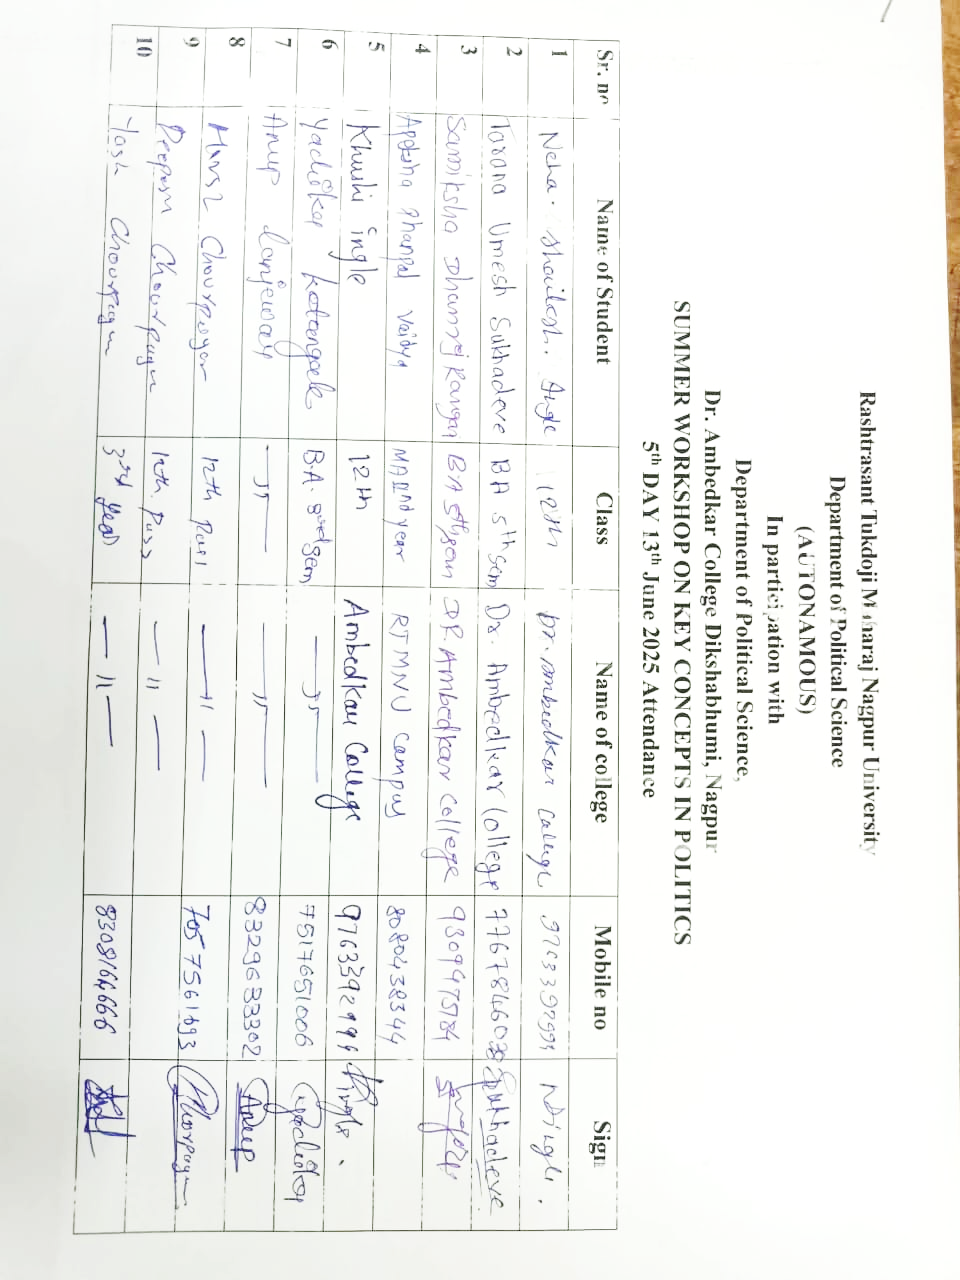 Rashtrasant Tukdoji Maharaj Nagpur University
Department of Political Science
(AUTONAMOUS)
In participation with
Department of Political Science,
Dr. Ambedkar College Dikshabhumi, Nagpur
SUMMER WORKSHOP ON KEY CONCEPTS IN POLITICS
5th DAY 13th June 2025 Attendance
Sr. no Name of Student Class Name of college Mobile no Sign
1 Neha. Shailesh. Ingle 12th Dr. Ambedkar College 9763392994
2 Umesh Sukhadeve BA 5th sem Dr. Ambedkar College Sukhadeve
3 Samiksha Dhanraj BA 5th sem DR. Ambedkar College
4 Apeksha Dhanpal Vaidya MA IInd year RTMNU campus 8080438344
5 Khushi ingle 12th Ambedkar College 9763392994 Kingle
6 B.A. sem — " — 7517651006
7 Anup — " — — " — 8329633302 Anup
8 Chourpagar 12th Pass — " —
9 Chourpagar 12th Pass — " — 7057561693
10 Yash Chourpagar 3rd year — " — 8308164666